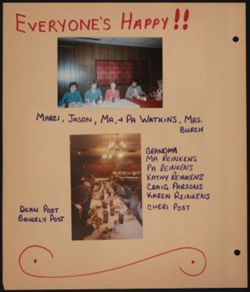 EVERYONE'S HAPPY!!
MARCI, JASON, MA, + PA WATKINS, MRS.
BURCH
GRANDMA
MA REINKENS
PA REINKENS
KATHY REINKENS
CRAIG PARSONS
KAREN REINKENS
CHERI POST
DEAN POST
BEVERLY POST